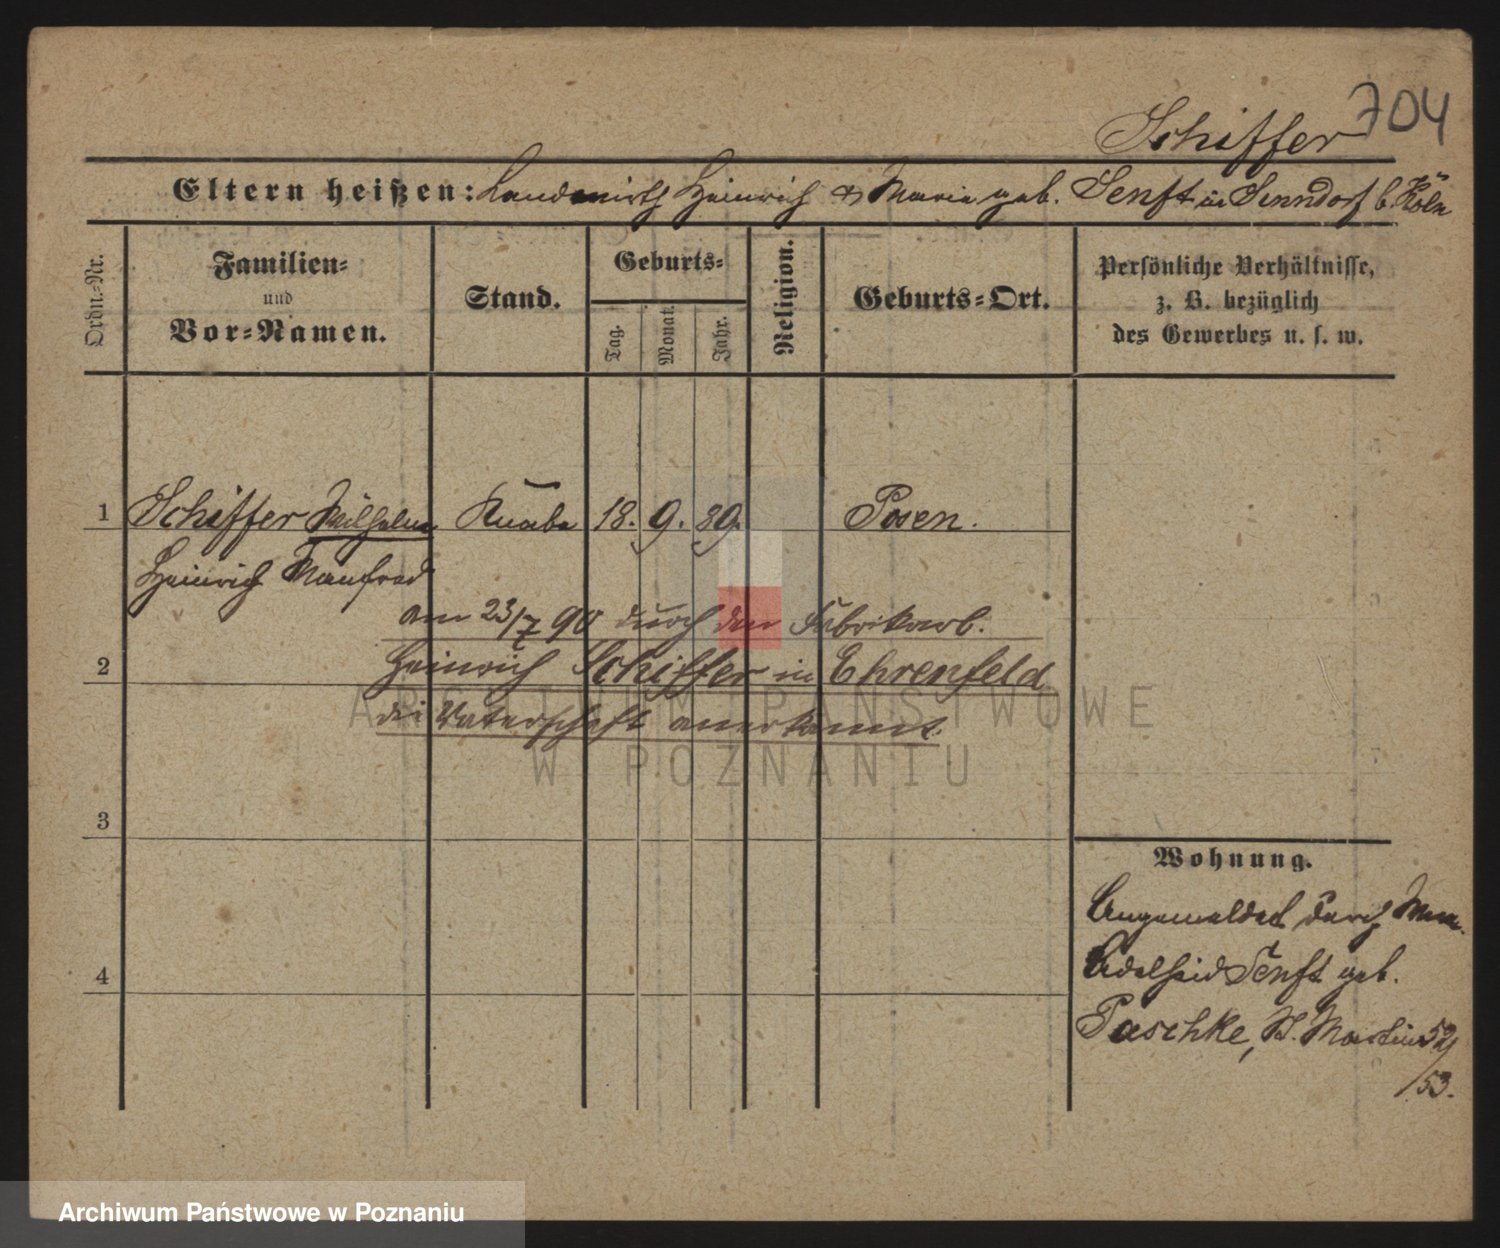 704
Schiffer
Eltern heißen: Landwirth Heinrich & Marie geb. Senft in Sinndorf b. Köln
Ordn.-Nr.
Familien- und Vor-Namen.
Stand.
Geburts-
Tag. Monat. Jahr.
Religion.
Geburts-Ort.
Persönliche Verhältnisse, z. B. bezüglich des Gewerbes u. s. w.
1 Schiffer Wilhelm Knabe 18. 9. 89. Posen.
Heinrich Manfred
am 23/7 90 durch den Fabrikarb.
2 Heinrich Schiffer in Ehrenfeld
die Vaterschaft anerkannt.
ARCHIWUM PAŃSTWOWE
W POZNANIU
3
Wohnung.
Angemeldet durch
4 Adelheid Senft geb.
Paschke, St. Martin 52/
53.
Archiwum Państwowe w Poznaniu